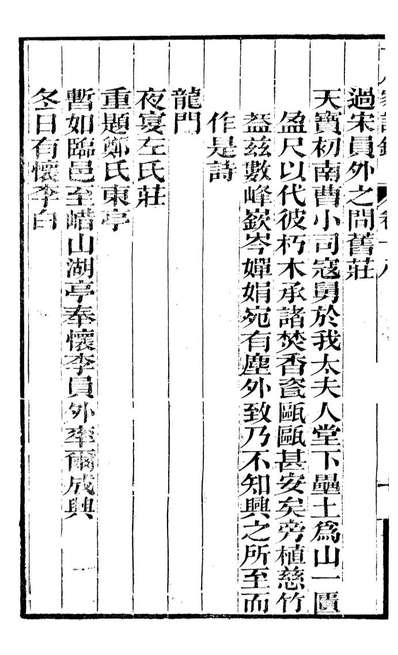 過宋員外之問舊莊
天寶初南曹小司寇舅於我太夫人堂下壘土爲山一匱
盈尺以代彼朽木承諸焚香瓷甌甌甚安矣旁植慈竹
蓋茲數峰嶔岑嬋娟宛有塵外致乃不知興之所至而
作是詩
龍門
夜宴左氏莊
重題鄭氏東亭
暫如臨邑至㟙山湖亭奉懷李員外率爾成興
冬日有懷李白